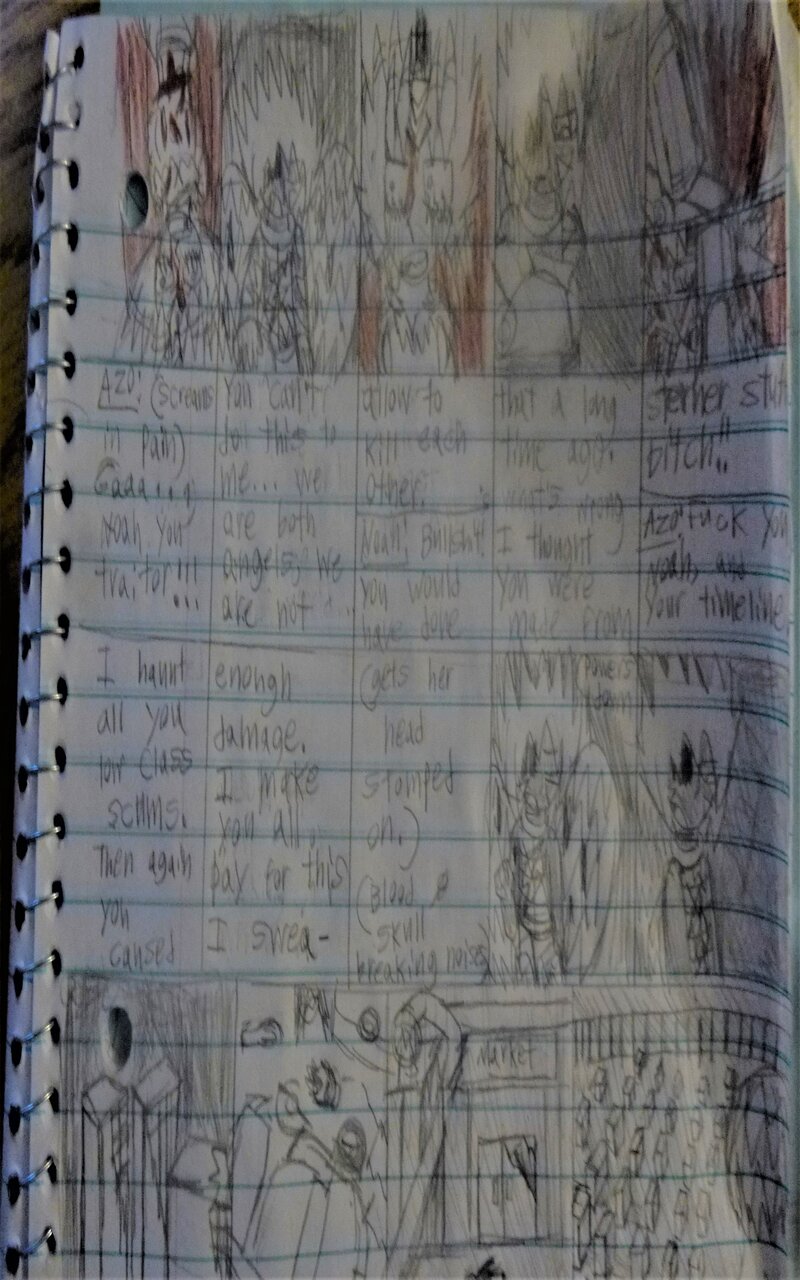 Azo: (screams
in pain)
Gaaa...
Noah you
traitor!!!
You can't
do this to
me... we
are both
angels, we
are not...
allow to
kill each
other.
Noah: Bullshit!
you would
have done
that a long
time ago.
What's wrong
I thought
you were
made from
sterner stuf
bitch!!
Azo: Fuck you
Noah, and
your timeline
I haunt
all you
low class
scums.
Then again
you
caused
enough
damage.
I make
you all
pay for this
I swea-
(gets her
head
stomped
on.)
(Blood &
skull
breaking noises
Powers
down
Market